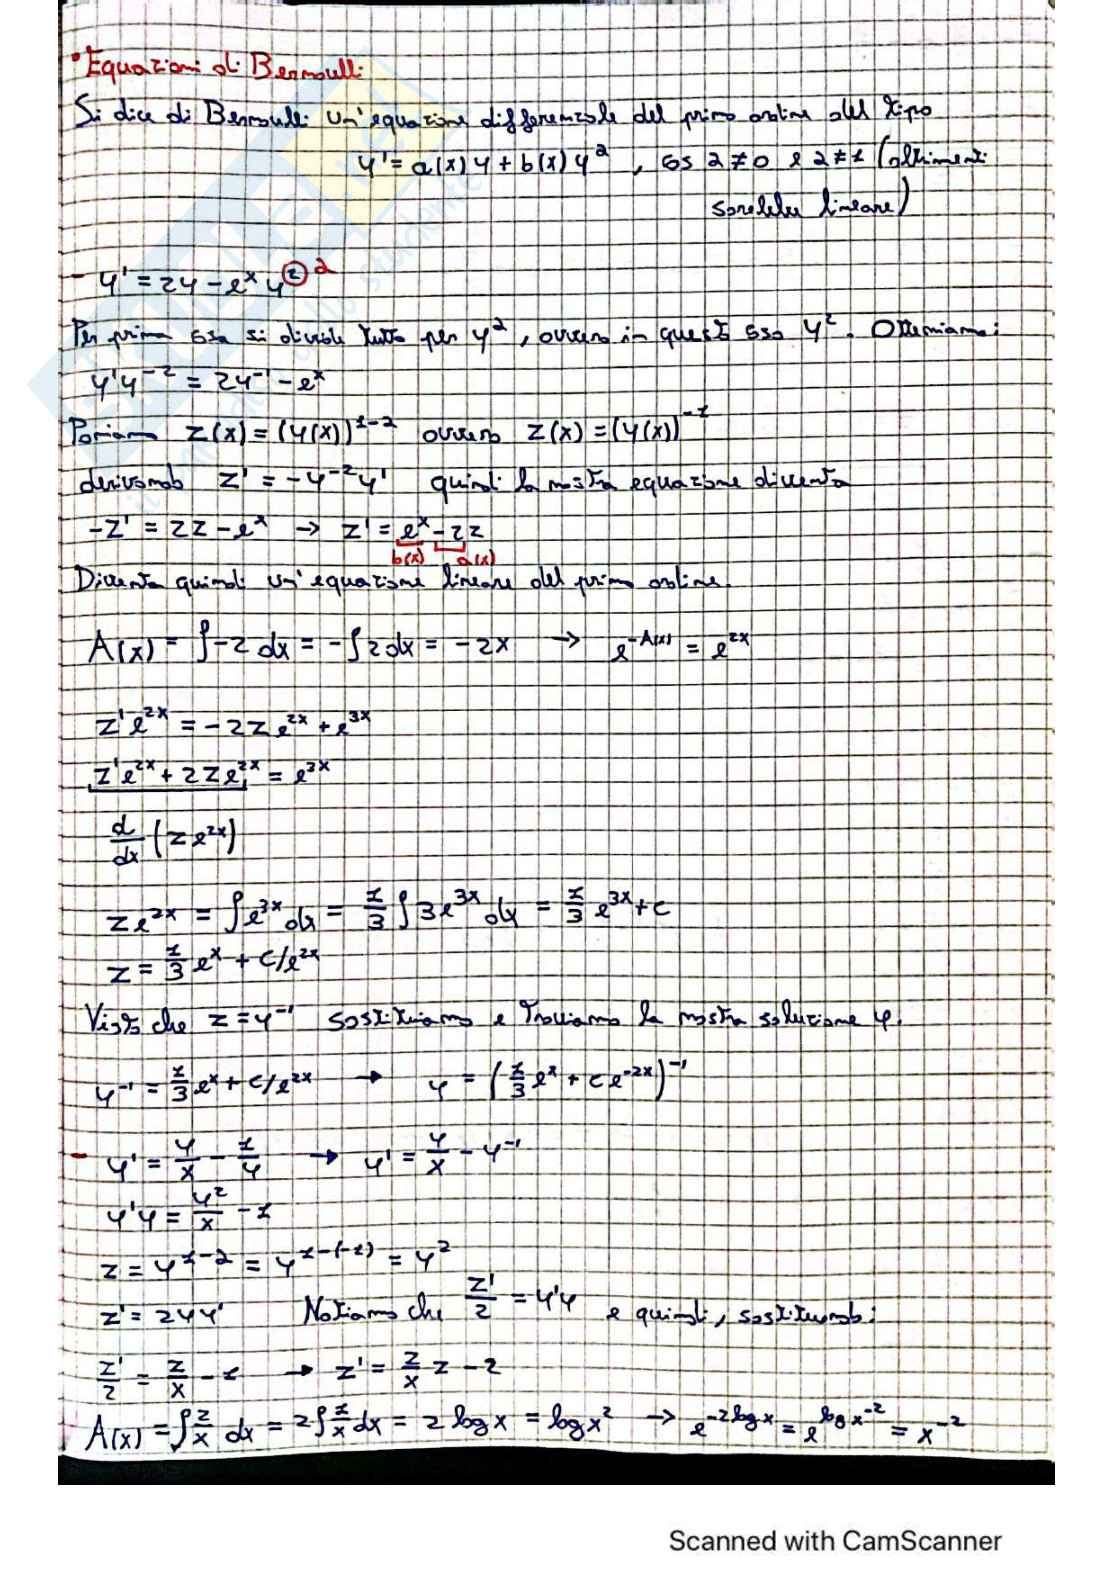 • Equazioni di Bernoulli:
Si dice di Bernoulli un'equazione differenziale del primo ordine del tipo
y' = a(x)y + b(x)y^α , con α ≠ 0 e α ≠ 1 (altrimenti
sarebbe lineare)
- y' = 2y - e^x y^② α
Per prima cosa si divide tutto per y^α, ovvero in questo caso y². Otteniamo:
y'y^-2 = 2y^-1 - e^x
Poniamo z(x) = (y(x))^1-α ovvero z(x) = (y(x))^-1
derivando z' = -y^-2 y' quindi la nostra equazione diventa
-z' = 2z - e^x → z' = e^x - 2z
b(x) a(x)
Diventa quindi un'equazione lineare del primo ordine.
A(x) = ∫-2 dx = -∫2 dx = -2x → e^-A(x) = e^2x
z'e^2x = -2z e^2x + e^3x
z'e^2x + 2z e^2x = e^3x
d/dx (z e^2x)
z e^2x = ∫e^3x dx = 1/3 ∫3e^3x dx = 1/3 e^3x + c
z = 1/3 e^x + c/e^2x
Visto che z = y^-1 sostituiamo e troviamo la nostra soluzione y.
y^-1 = 1/3 e^x + c/e^2x → y = (1/3 e^x + c e^-2x)^-1
- y' = y/x - 1/y → y' = y/x - y^-1
y'y = y²/x - 1
z = y^1-α = y^1-(-1) = y²
z' = 2yy' Notiamo che z'/2 = y'y e quindi, sostituendo:
z'/2 = z/x - 1 → z' = 2/x z - 2
A(x) = ∫2/x dx = 2∫1/x dx = 2 log x = log x² → e^-2 log x = e^log x^-2 = x^-2
Scanned with CamScanner